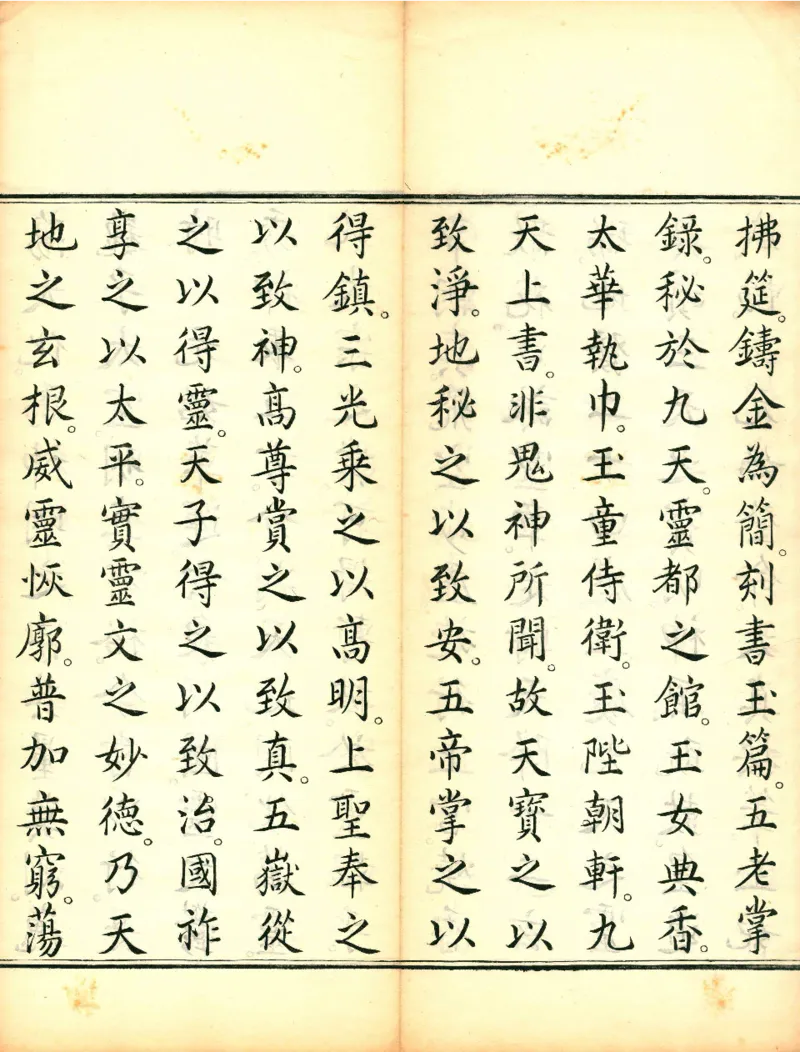 拂筵。鑄金為簡。刻書玉篇。五老掌
錄。秘於九天。靈都之館。玉女典香。
太華執巾。玉童侍衛。玉陛朝軒。九
天上書。非鬼神所聞。故天寶之以
致淨。地秘之以致安。五帝掌之以
得鎮。三光乘之以高明。上聖奉之
以致神。高尊賞之以致真。五嶽從
之以得靈。天子得之以致治。國祚
享之以太平。實靈文之妙德。乃天
地之玄根。威靈恢廓。普加無窮。蕩